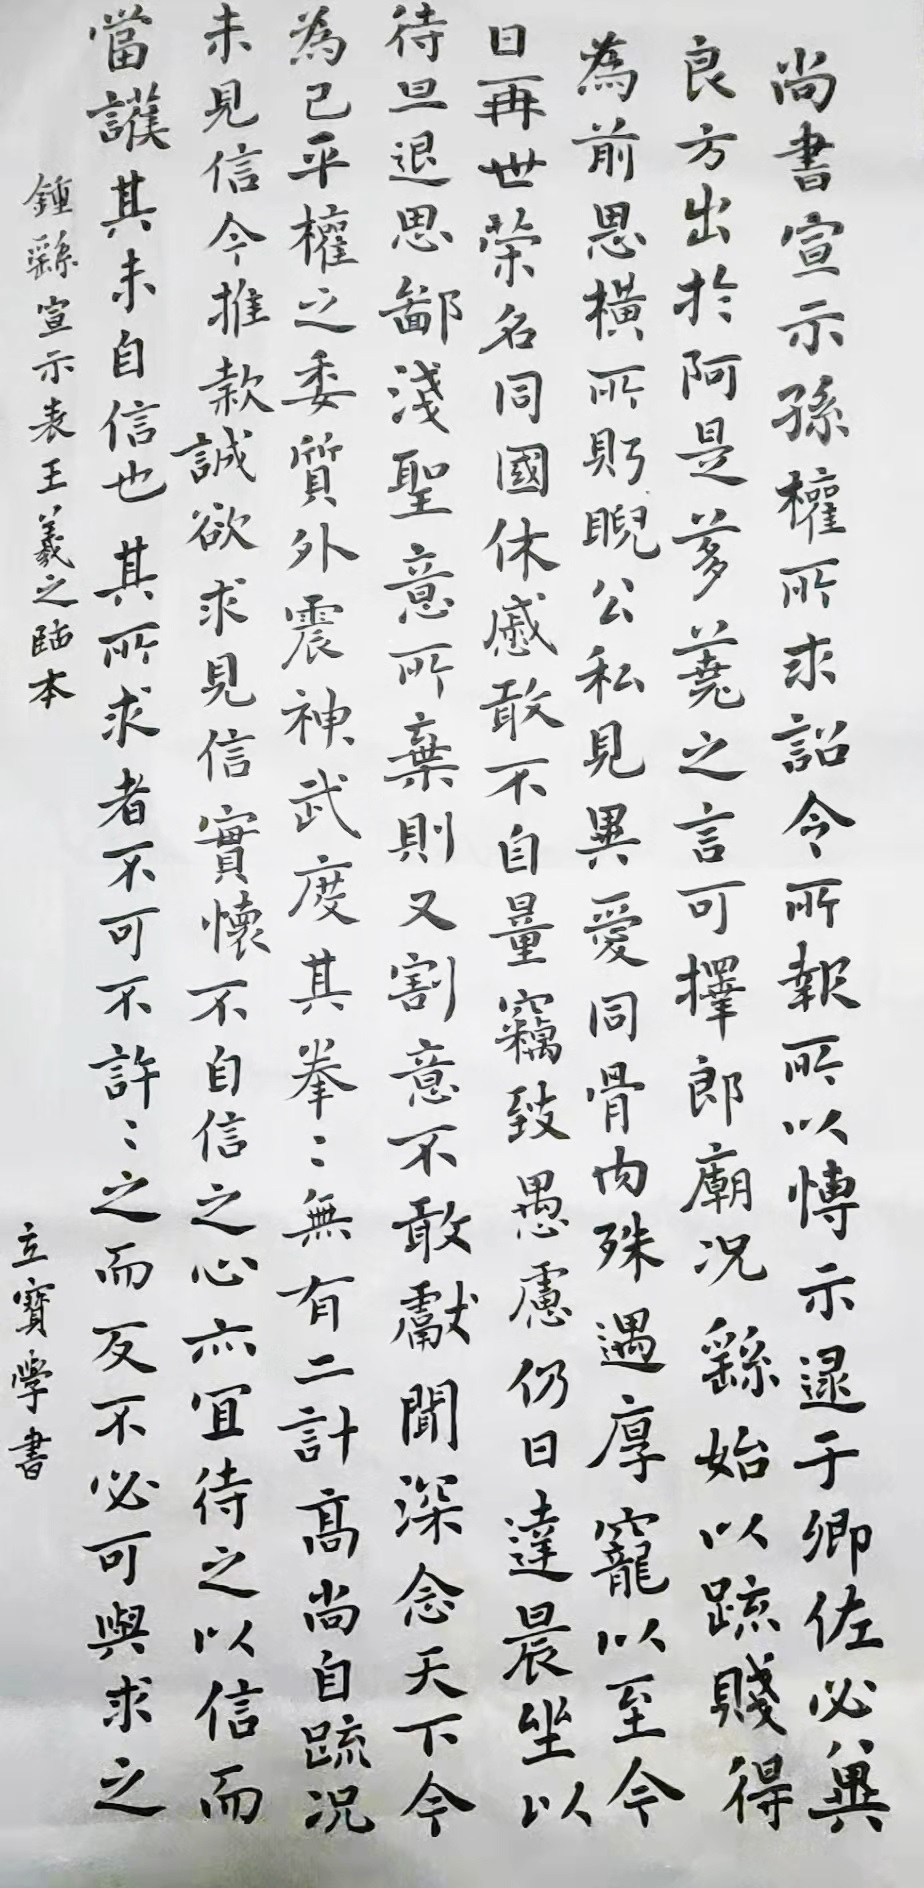 尚書宣示孫權所求詔令所報所以博示逮于卿佐必冀
良方出於阿是芻蕘之言可擇郎廟况繇始以疏賤得
為前恩橫所眄睨公私見異愛同骨肉殊遇厚寵以至今
日再世榮名同國休慼敢不自量竊致愚慮仍日達晨坐以
待旦退思鄙淺聖意所棄則又割意不敢獻聞深念天下今
為已平權之委質外震神武度其拳〻無有二計高尚自疏况
未見信今推款誠欲求見信實懷不自信之心亦宜待之以信而
當護其未自信也其所求者不可不許〻之而反不必可與求之
鍾繇宣示表王羲之臨本
立寶學書